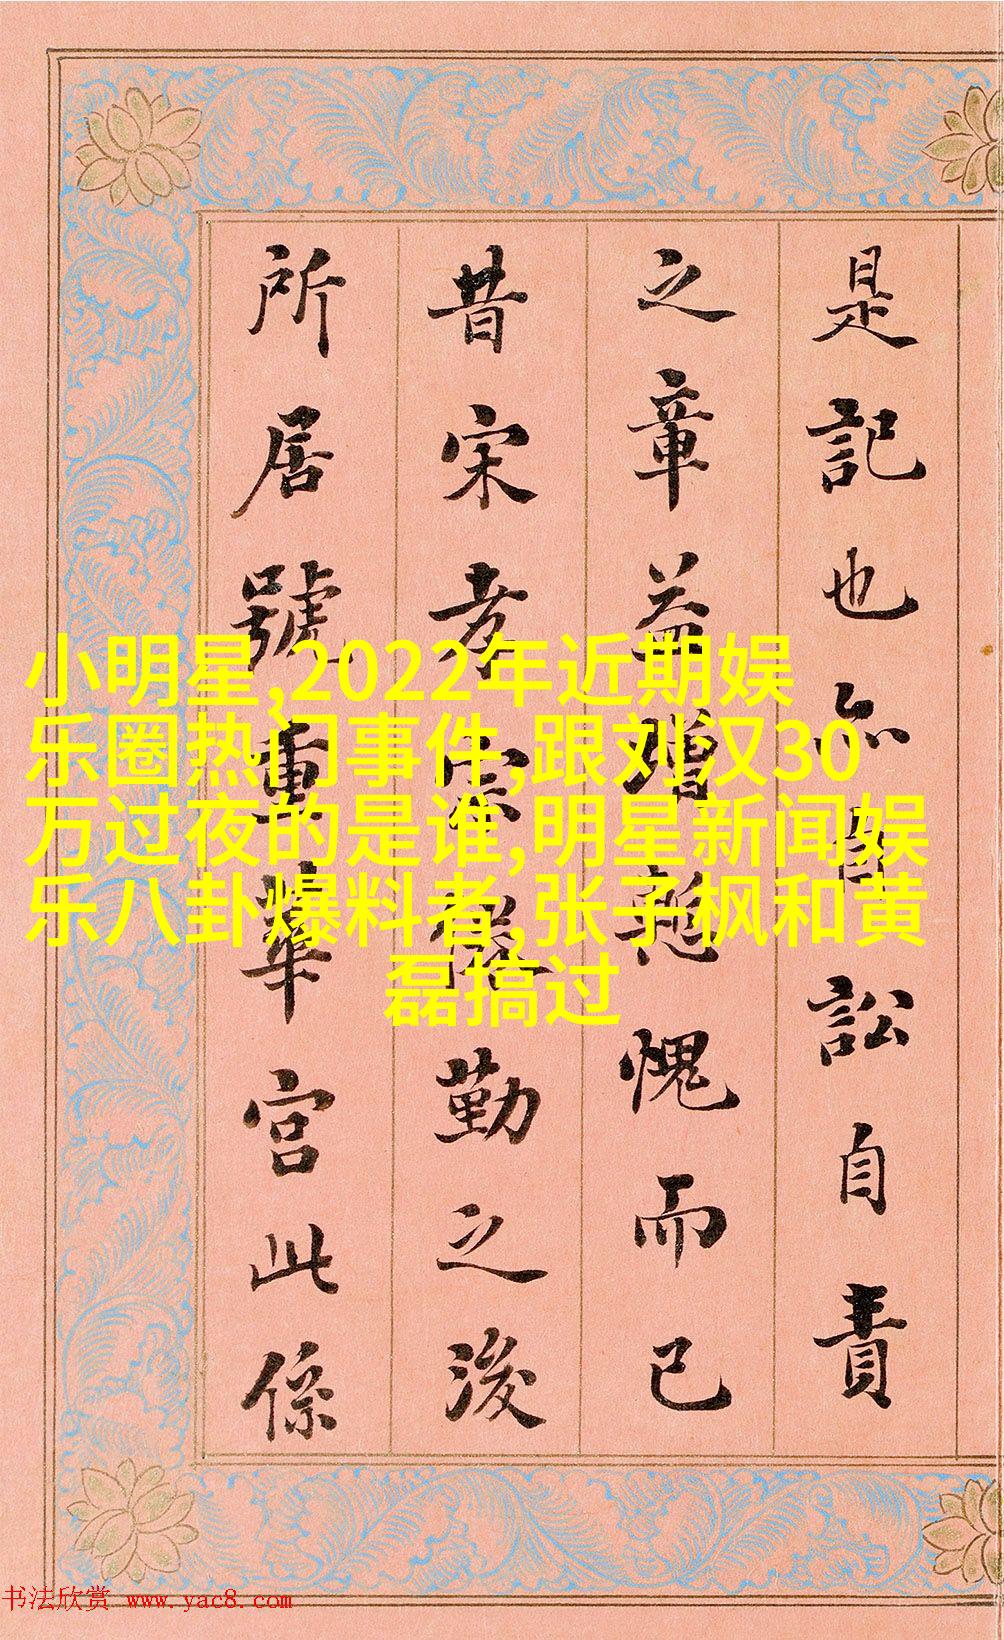 是記也亦自訟自責
之章益增慙愧而已
昔宋孝宗倦勤之後
所居號重華宮此係
小明星,2022年近期娱
乐圈热门事件,跟刘汉30
万过夜的是谁,明星新闻娱
乐八卦爆料者,张子枫和黄
磊搞过
书法欣赏 www.yac8.com